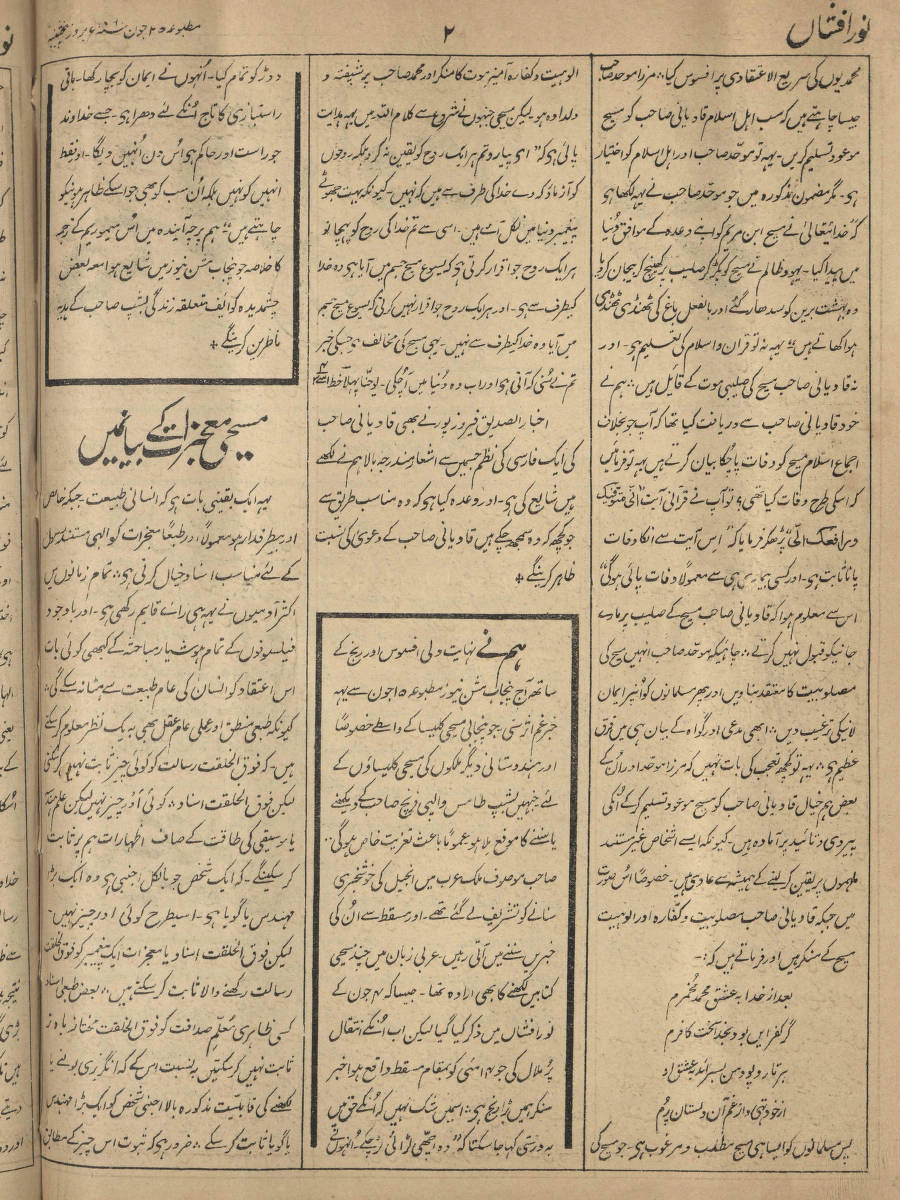 نور افشاں
۲
مطبوعہ ۲۵ جون ۱۸۹۱ء بروز پنجشنبہ
محمدیوں کی سریع الاعتقادی پر افسوس کیا۔ مرزا موحد صاحب
جیسا چاہتے ہیں کہ سب اہل اسلام قادیانی صاحب کو مسیح
موعود تسلیم کریں۔ یہہ تو موحّد صاحب اور اہل اسلام کو اختیار
ہی۔ مگر مضمون مذکورہ میں جو موحّد صاحب نے یہہ لکھا ہی
کہ خدایتعالیٰ نے مسیح ابن مریم کو اپنے وعدہ کے موافق دُنیا
میں پیدا کیا۔ یہود ظالم نے مسیح کو پکڑ کر صلیب پر کھینچ کر بیجان کر دیا
وہ بہشت برین کو سدھار گئے اور بالفعل باغ کی ٹھنڈی ٹھنڈی
ہوا کھاتے ہیں‘‘ یہہ نہ تو قران و اسلام کی تعلیم ہی۔ اور
نہ قادیانی صاحب مسیح کی صلیبی موت کے قایل ہیں۔ ہم نے
خود قادیانی صاحب سے دریافت کیا تھا کہ آپ جو بخلاف
اجماع اسلام مسیح کو وفات پا چُکا بیان کرتے ہیں یہہ تو فرمائیں
کہ اسکی طرح وفات کیا تھی؟ تو آپ نے قرآنی آیت ’’انّی متوفیک
و رافعک الیّ‘‘ پڑھکر فرمایا کہ ’’اس آیت سے انکا وفات
پانا ثابت ہی۔ اور کسی بیماری ہی سے معمولاً وفات پائی ہوگی‘‘
اس سے معلوم ہوا کہ قادیانی صاحب مسیح کے صلیب پر مارے
جانیکو قبول نہیں کرتے۔ چاہیکہ موحّد صاحب انہیں مسیح کی
مصلوبیت کا معتقد بناویں اور پھر مسلمانوں کو اُنپر ایمان
لانیکی ترغیب دیں۔ ابھی مدعی اور گواہ کے بیان ہی میں فرق
عظیم ہی۔ یہہ تو کچھ تعجب کی بات نہیں کہ مرزا موحد اور اُن کے
بعض ہم خیال قادیانی صاحب کو مسیح موعود تسلیم کر کے اُنکی
پیروی و تائید پر آمادہ ہیں۔ کیونکہ ایسے اشخاص غیر مستند
ملہموں پر یقین کر لینے کے ہمیشہ سے عادی ہیں۔ خصوصاً اس صورت
میں جبکہ قادیانی صاحب مصلوبیت و کفّارہ اور الوہیت
مسیح کے منکر ہیں اور فرماتے ہیں کہ:۔
بعد از خدا بہ عشق محمد مُخمّرم
گر کفر ایں بود بخدا سخت کافرم
ہر تار و پود من بسراید بعشق او
از خود تہی و از غم آن دلستان پُرم
پس مسلمانوں کو ایسا ہی مسیح مطلب و مرغوب ہی۔ جو مسیح کی
الوہیت و کفارہ آمیز موت کا منکر اور محمد صاحب پر شیفتہ و
دلدادہ ہو لیکن مسیحی جنہوں نے شروع سے کلام اللہ میں یہہ ہدایت
پائی ہی کہ ’’ای پیارو تم ہر ایک روح کو یقین نہ کرو بلکہ روحوں
کو آزماؤ کہ وے خدا کی طرف سے ہیں کہ نہیں۔ کیونکہ بہت جھوٹے
پیغمبر دنیا میں نکل آئے ہیں۔ اسی سے تم خدا کی روح کو پہچانو
ہر ایک روح جو اقرار کرتی ہی کہ یسوع مسیح جسم میں آیا ہی وہ خدا
کیطرف سے ہی۔ اور ہر ایک روح جو اقرار نہیں کرتی کہ یسوع مسیح جسم
میں آیا وہ خدا کیطرف سے نہیں۔ یہی مسیح کی مخالف ہو جسکی خبر
تم نے سُنی کہ آتی ہی اور اب وہ دُنیا میں آ چکی۔ یوحنا پہلا خط
اخبار الصدیق فیروزپور نے بھی قادیانی صاحب
کی ایک فارسی کی نظم جسمیں سے اشعار مندرجہ بالا ہم نے لکھے
ہیں شایع کی ہی۔ اور وعدہ کیا ہی کہ وہ مناسب طریق سے
جو کچھ کہ وہ سمجھ چکے ہیں قادیانی صاحب کے دعوی کی نسبت
ظاہر کرینگے ÷
ہم نے نہایت دلی افسوس اور رنج کے
ساتھ آج پنجاب مشن نیوز مطبوعہ ۱۵ جون سے یہہ
خبر غم اثر سنی۔ جو پنجابی مسیحی کلیسیا کے واسطے خصوصاً
اور ہندوستانی و دیگر ملکوں کی مسیحی کلیسیاؤں کے
لئے جنہیں بشپ طامس والپی فرنچ صاحب کے دیکھنے
یا سننے کا موقع ملا ہو عموماً باعث تعزیت خاص ہوگی۔
صاحب موصوف ملک عرب میں انجیل کی خوشخبری
سنانے کو تشریف لے گئے تھے۔ اور مسقط سے اُن کی
خبریں سننے میں آتی رہیں۔ عربی زبان میں چند مسیحی
کتابیں لکھنے کا بھی ارادہ تھا۔ جیسا کہ ۴ جون کے
نور افشاں میں ذکر کیا گیا لیکن اب اُنکے انتقال
پُر ملال کی جو ۱۴ مئی کو بمقام مسقط واقع ہوا خبر
سنکر ہمیں بڑا رنج ہی۔ اسمیں شک نہیں کہ اُنکے حق میں
بدرستی کہا جا سکتا کہ ’’وہ اچھی لڑائی لڑ چکے۔ اُنہوں نے
دوڑ کو تمام کیا۔ اُنہوں نے ایمان کو بچا رکھا۔ باقی
راستبازی کا تاج اُنکے لئے دھرا ہی۔ جسے خداوند
جو راست اور حاکم ہی اُس دن اُنہیں دیگا۔ اور فقط
انہیں کو نہیں بلکہ اُن سب کو بھی جو اسکے ظاہر ہونیکو
چاہتے ہیں‘‘ ہم پرچہ آیندہ میں اُس میموریم کے ترجمہ
کا خلاصہ جو پنجاب مشن نیوز میں شایع ہوا معہ بعض
چشمدیدہ کوایف متعلقہ زندگی بشپ صاحب کے ہدیہ
ناظرین کرینگے ÷
مسیحی معجزات کے بیانمیں
یہہ ایک یقینی بات ہی کہ انسانی طبیعت جبکہ خالص
اور بیطرفدار ہو معمولاً اور طبعاً معجزات کو الٰہی مستند رسول
کے لئے مناسب اسناد خیال کرتی ہی۔ تمام زمانوں میں
اکثر آدمیوں نے یہہ ہی رائے قایم رکھی ہی۔ اور باوجود
فیلسوفوں کے تمام ہوشیار مباحثہ کے کبھی کوئی بات
اس اعتقاد کو انسان کی عام طبیعت سے مٹا نہ سکے گی۔
کیونکہ طبعی منطق اور علی عام عقل بھی بہ یک نظر معلوم کر سکتے
ہیں۔ کہ فوق الخلقت رسالت کو کوئی چیز ثابت نہیں کر سکتی
لیکن فوق الخلقت اسناد۔ کوئی اَور چیز نہیں لیکن علم ہندسہ
یا موسیقی کی طاقت کے صاف اظہارات ہم پر ثابت
کر سکینگے۔ کہ ایک شخص جو بالکل اجنبی ہی وہ ایک بڑا
مہندس یا گویا ہی۔ اسیطرح کوئی اور چیز نہیں۔
لیکن فوق الخلقت اسناد یا معجزات ایک پیغمبر کو فوق الخلقت
رسالت رکھنے والا ثابت کر سکتے ہیں۔ بعض طبعی اسناد
کسی ظاہری مُعلّم صداقت کو فوق الخلقت مختار زیادہ تر
ثابت نہیں کر سکتیں بنسبت اس کے کہ انگریزی بولنے یا
لکھنے کی قابلیت مذکورہ بالا اجنبی شخص کو ایک بڑا مہندس
یا گویا ثابت کر سکے۔ ضرور ہی کہ ثبوت اس چیز کے مطابق